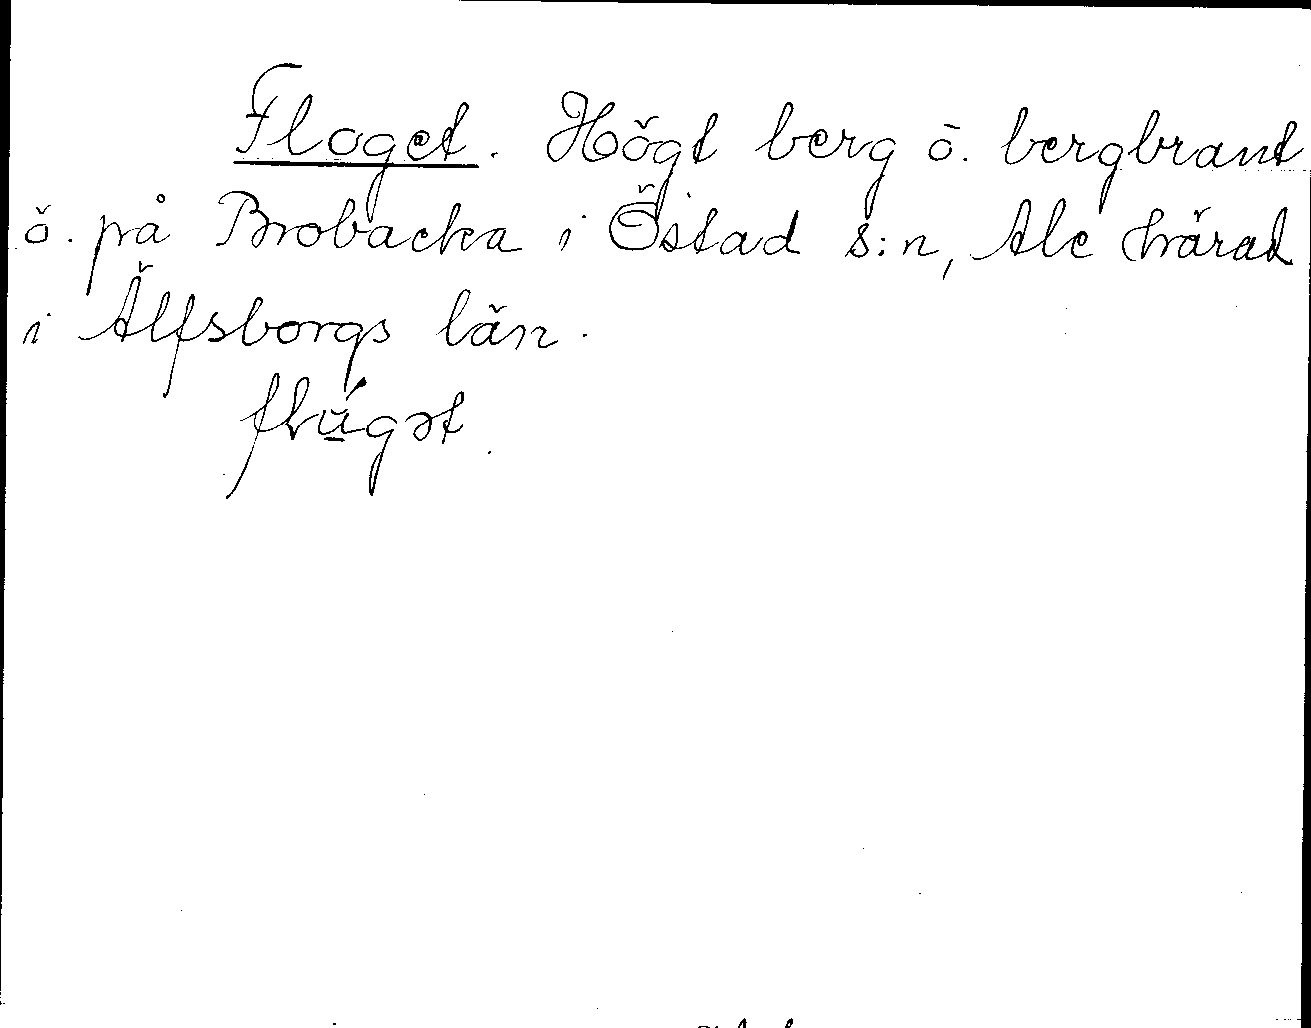 Floget. Högt berg o. bergbrant
ö. på Brobacka i Östad s:n, Ale härad
i Älfsborgs län.
flu̲gət